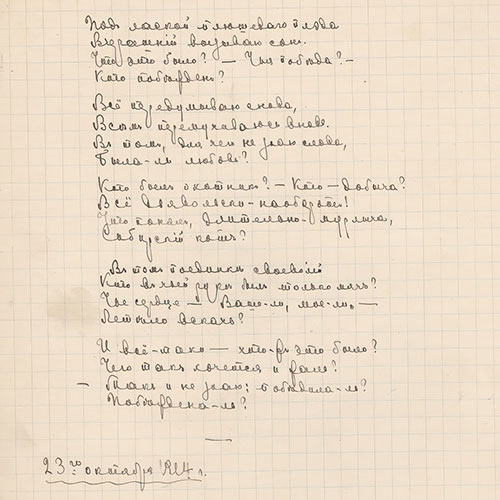 Подъ лаской плюшеваго пледа
Вчерашній вызываю сонъ.
Что это было? — Чья побѣда? —
Кто побѣжденъ?
Всё передумываю снова,
Всѣмъ перемучиваюсь вновь.
Въ томъ, для чего не знаю слова,
Была-ль любовь?
Кто былъ охотникъ? — Кто — добыча?
Всё дьявольски-наоборотъ!
Что понялъ, длительно мурлыча,
Сибирскій котъ?
Въ томъ поединкѣ своеволій
Кто въ чьей рукѣ былъ только мячъ?
Чьё сердце — Ваше-ли, мое-ли, —
Летѣло вскачь?
И всё-таки — что-жъ это было?
Чего такъ хочется и жаль?
Такъ и не знаю: побѣдила-ль?
Побѣждена-ль?
23го октября 1914 г.